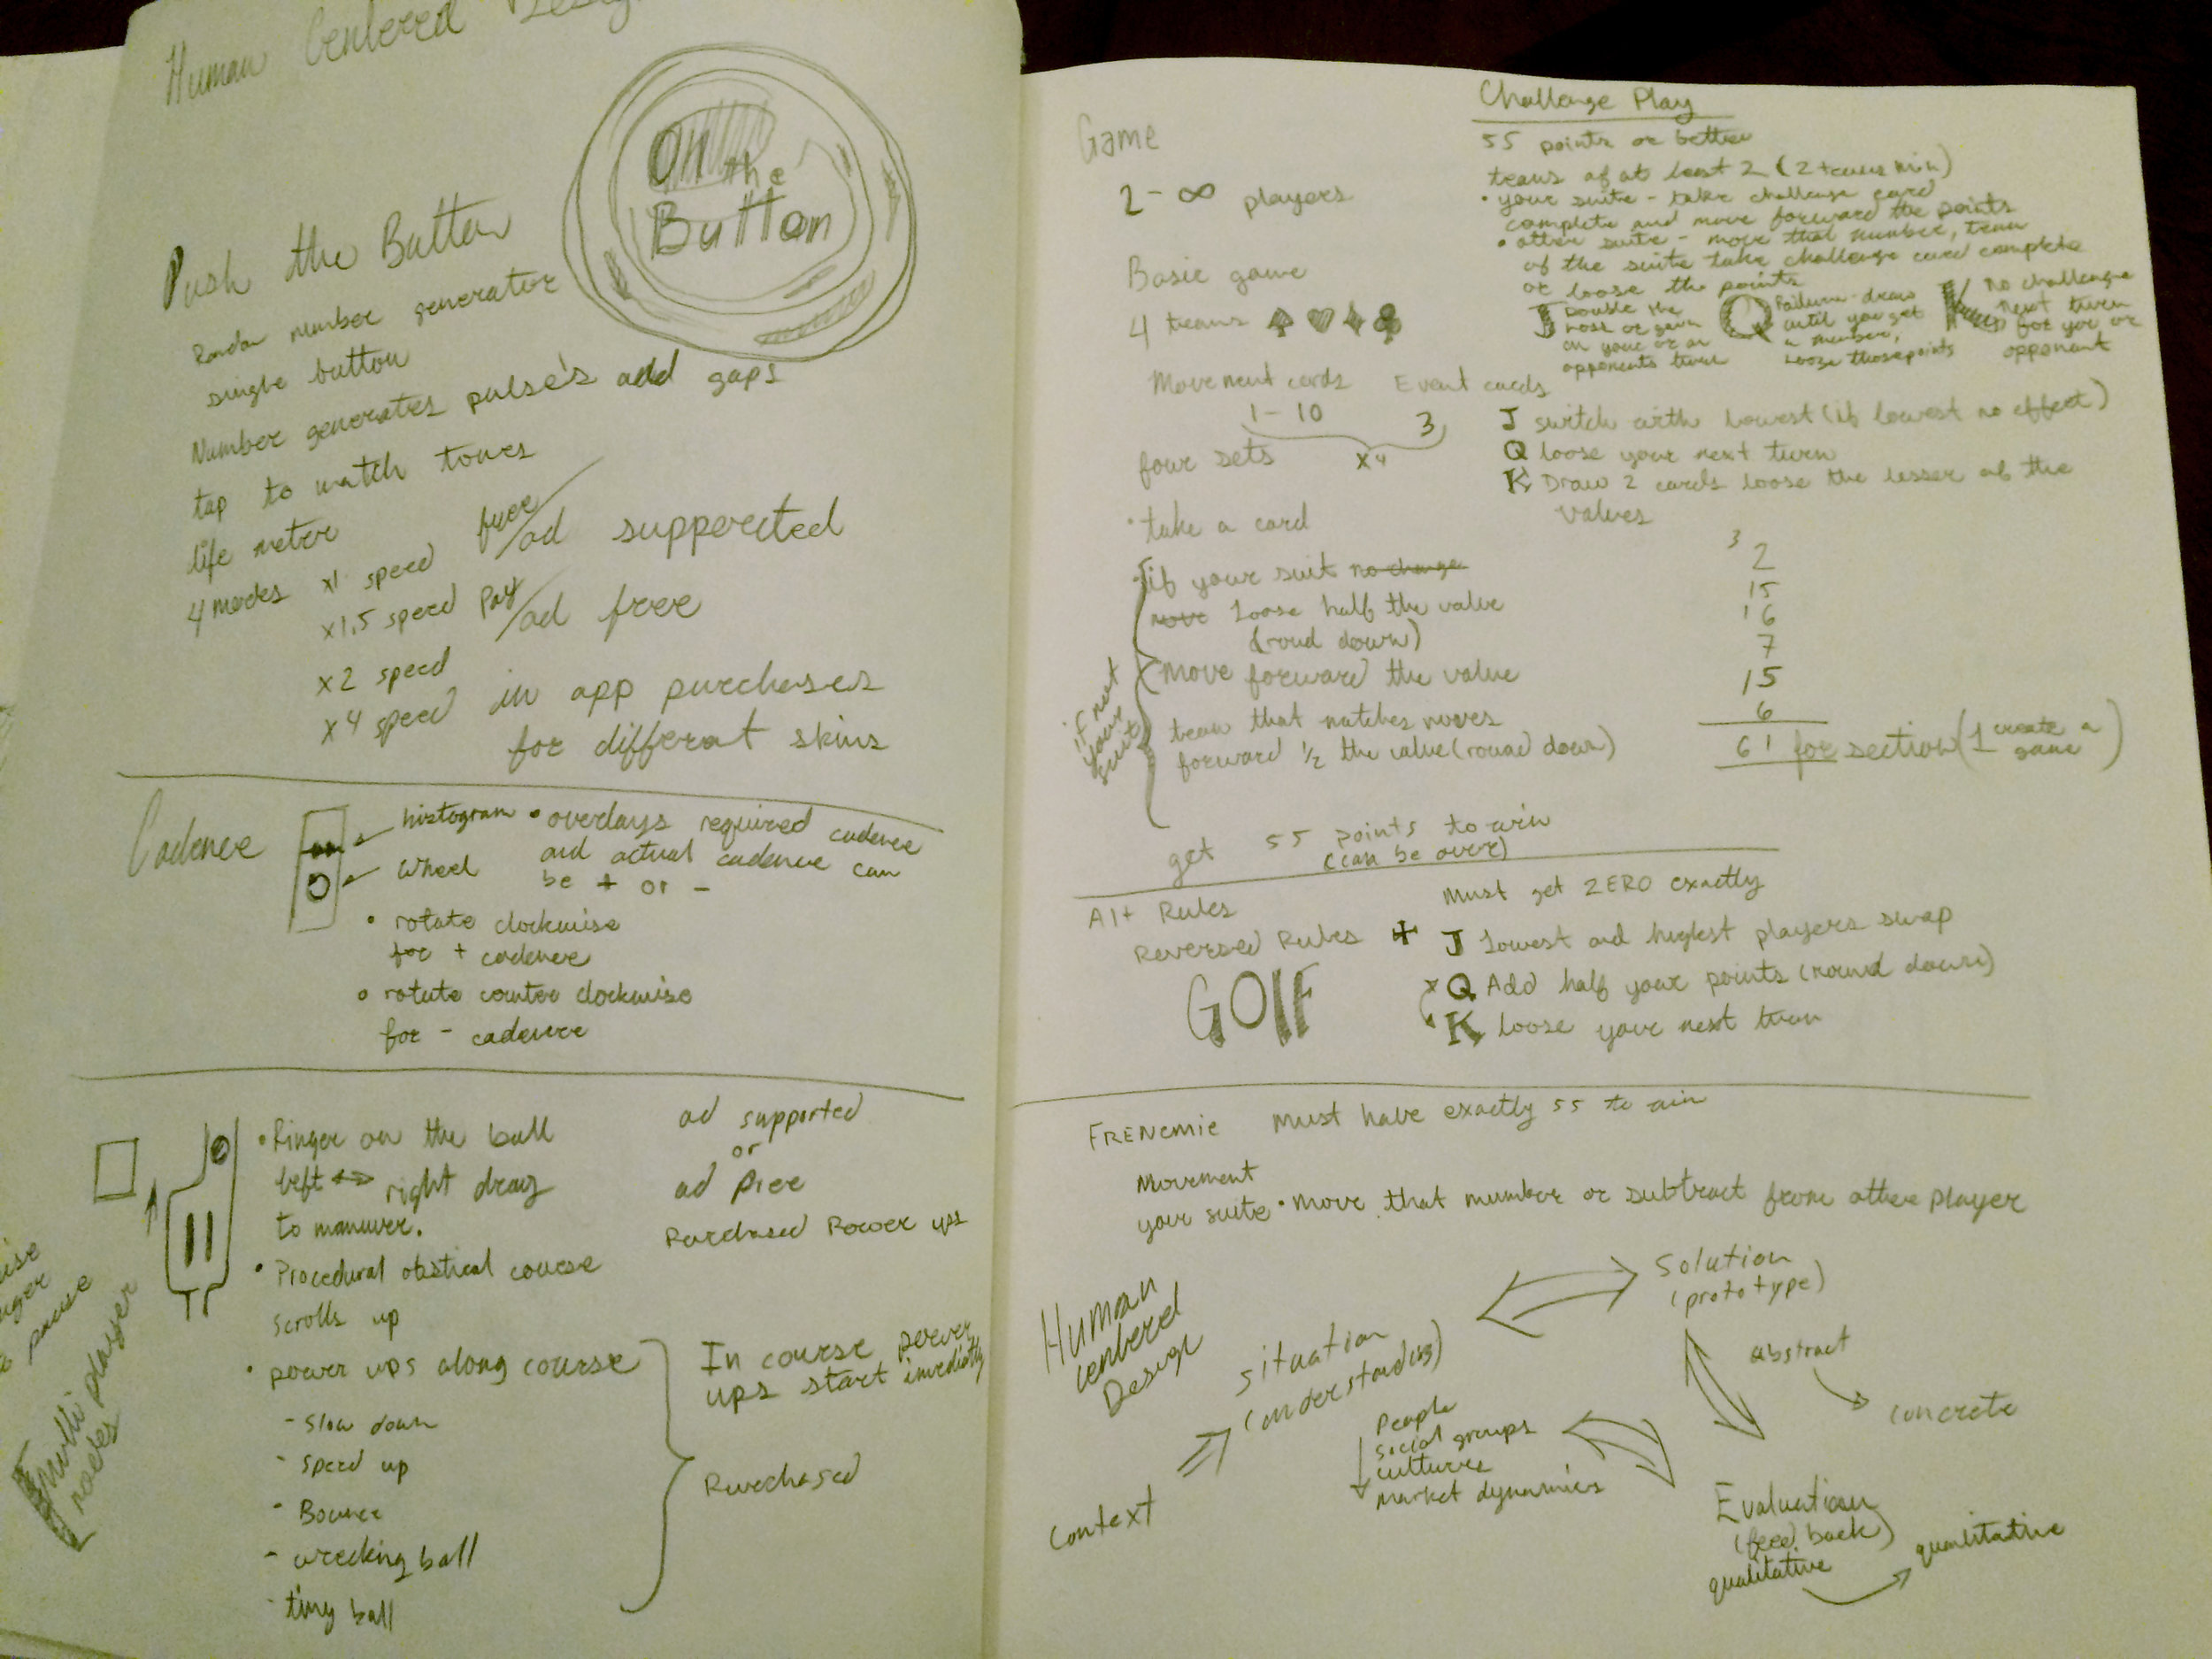 Human Centered Desig
On the
Button
Push the Button
Randon number generator
single button
Number generates pulse's add gaps
tap to match tones
life meter
4 modes x1 speed free/ad supported
x1.5 speed Pay/ad free
x2 speed
x4 speed in app purchases
for different skins
Cadence
histogram
Wheel
• overlays required cadence
and actual cadence can
be + or -
• rotate clockwise
for + cadence
• rotate counter clockwise
for - cadence
• Finger on the ball
left ↔ right drag
to manuver.
• Procedural obstical course
scrolls up
• power ups along course
- slow down
- speed up
- Bounce
- wrecking ball
- tiny ball
ad supported
or
ad free
Purchased Power ups
In course power
ups start imediatly
Purchased
pause
Multi player
modes
Game
2 - ∞ players
Basic game
4 teams ♠ ♥ ♦ ♣
Movement cards Event cards
1 - 10 3
four sets x4
• take a card
if your suit no change
move Loose half the value
(roud down)
if not
your
suit
move forward the value
team that matches moves
forward 1/2 the value (round down)
get 55 points to win
(can be over)
Challenge Play
55 points or better
teams of at least 2 (2 teams min)
• your suite - take challenge card
complete and move forward the points
• other suite - move that number, team
of the suite take challenge card complete
or loose the points
J Double the
loss or gain
on your or an
opponents turn
Q Failure - draw
until you get
a number,
loose those points
K No challenge
next turn
for you or
opponent
J switch with lowest (if lowest no effect)
Q loose your next turn
K Draw 2 cards loose the lesser of the
values
3
2
15
16
7
15
6
61 for section (1 create a
game)
Alt Rules
Reversed Rules +
GOLF
Must get ZERO exactly
J Lowest and highest players swap
Q Add half your points (round down)
K loose your next turn
FRENEMIE Must have exactly 55 to win
Movement
your suite • move that number or subtract from other player
Human
Centered
Design
Context
situation
(understanding)
People
social groups
cultures
market dynamics
Solution
(prototype)
abstract
concrete
Evaluation
(feed back)
qualitative
quantitative